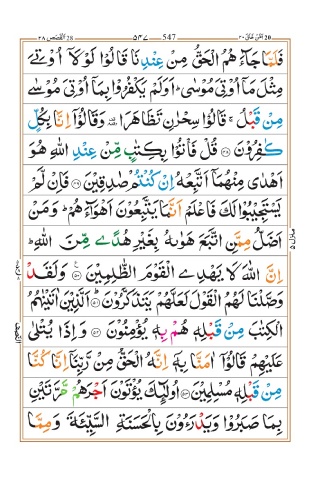 القصص ٢٨ 28 547 ٥٤٧ امن خلق ٢٠ 20
فَلَمَّا جَآءَهُمُ الْحَقُّ مِنْ عِنْدِنَا قَالُوْا لَوْلَآ اُوْتِیَ
مِثْلَ مَاۤ اُوْتِیَ مُوْسٰیؕ اَوَلَمْ یَكْفُرُوْا بِمَاۤ اُوْتِیَ مُوْسٰی
مِنْ قَبْلُۚ قَالُوْا سِحْرٰنِ تَظَاهَرَاۥۙ وَ قَالُوْۤا اِنَّا بِكُلٍّ
كٰفِرُوْنَ۝۴۸ قُلْ فَاْتُوْا بِكِتٰبٍ مِّنْ عِنْدِ اللّٰهِ هُوَ
اَهْدٰی مِنْهُمَاۤ اَتَّبِعْهُ اِنْ كُنْتُمْ صٰدِقِیْنَ۝۴۹ فَاِنْ لَّمْ
یَسْتَجِیْبُوْا لَكَ فَاعْلَمْ اَنَّمَا یَتَّبِعُوْنَ اَهْوَآءَهُمْؕ وَ مَنْ
اَضَلُّ مِمَّنِ اتَّبَعَ هَوٰىهُ بِغَیْرِ هُدًی مِّنَ اللّٰهِؕ
اِنَّ اللّٰهَ لَا یَهْدِی الْقَوْمَ الظّٰلِمِیْنَ۝۵۰ وَ لَقَدْ
وَصَّلْنَا لَهُمُ الْقَوْلَ لَعَلَّهُمْ یَتَذَكَّرُوْنَؕ۝۵۱ اَلَّذِیْنَ اٰتَیْنٰهُمُ
الْكِتٰبَ مِنْ قَبْلِهٖ هُمْ بِهٖ یُؤْمِنُوْنَ۝۵۲ وَ اِذَا یُتْلٰی
عَلَیْهِمْ قَالُوْۤا اٰمَنَّا بِهٖۤ اِنَّهُ الْحَقُّ مِنْ رَّبِّنَاۤ اِنَّا كُنَّا
مِنْ قَبْلِهٖ مُسْلِمِیْنَ۝۵۳ اُولٰٓىِٕكَ یُؤْتَوْنَ اَجْرَهُمْ مَّرَّتَیْنِ
بِمَا صَبَرُوْا وَ یَدْرَءُوْنَ بِالْحَسَنَةِ السَّیِّئَةَ وَ مِمَّا
منزل ٥